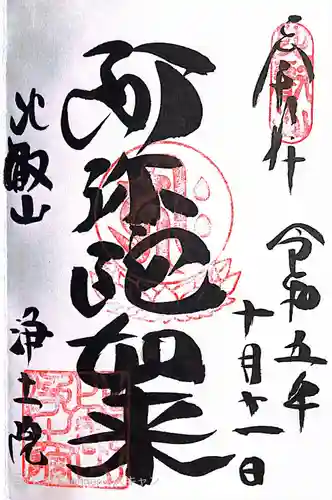 令和五年
十月十一日
阿弥陀如来
比叡山 浄土院